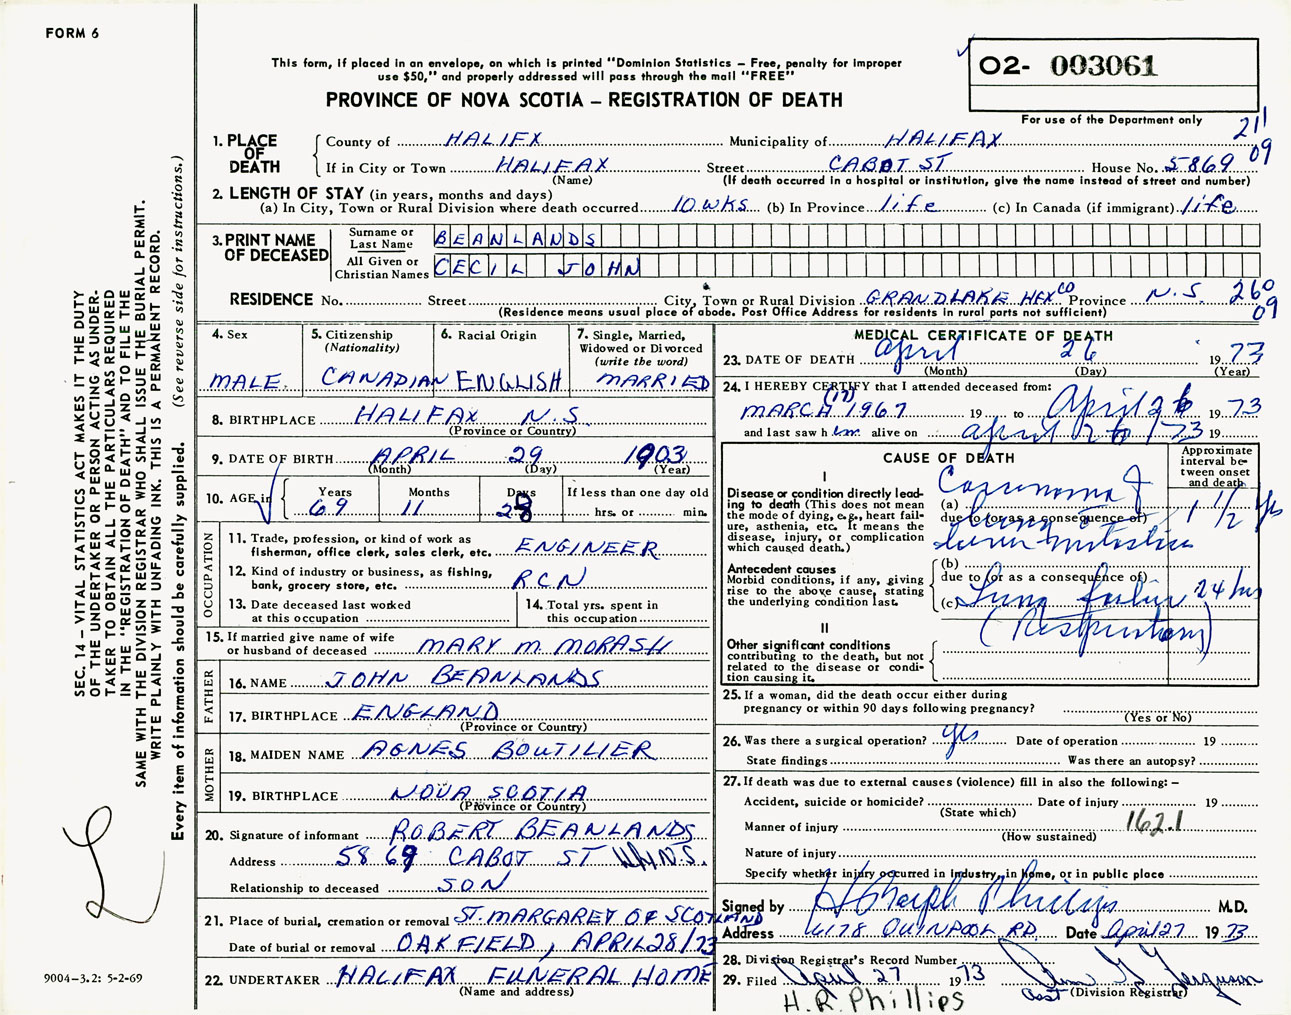 FORM 6
This form, if placed in an envelope, on which is printed "Dominion Statistics – Free, penalty for improper
use $50," and properly addressed will pass through the mail "FREE"
PROVINCE OF NOVA SCOTIA – REGISTRATION OF DEATH
O2- 003061
For use of the Department only
211
09
1. PLACE OF DEATH
County of HALIFX Municipality of HALIFAX
If in City or Town HALIFAX Street CABOT ST House No. 5869
(Name) (If death occurred in a hospital or institution, give the name instead of street and number)
2. LENGTH OF STAY (in years, months and days)
(a) In City, Town or Rural Division where death occurred 10 WKS (b) In Province life (c) In Canada (if immigrant) life
3. PRINT NAME OF DECEASED
Surname or Last Name BEANLANDS
All Given or Christian Names CECIL JOHN
RESIDENCE No. Street City, Town or Rural Division GRANDLAKE HFX CO Province N.S. 260
09
(Residence means usual place of abode. Post Office Address for residents in rural parts not sufficient)
4. Sex
MALE
5. Citizenship
(Nationality)
CANADIAN
6. Racial Origin
ENGLISH
7. Single, Married,
Widowed or Divorced
(write the word)
MARRIED
8. BIRTHPLACE HALIFAX N.S.
(Province or Country)
9. DATE OF BIRTH APRIL 29 1903
(Month) (Day) (Year)
10. AGE in
Years 69 Months 11 Days 28
If less than one day old
hrs. or min.
OCCUPATION
11. Trade, profession, or kind of work as
fisherman, office clerk, sales clerk, etc. ENGINEER
12. Kind of industry or business, as fishing,
bank, grocery store, etc. RCN
13. Date deceased last worked
at this occupation
14. Total yrs. spent in
this occupation
15. If married give name of wife
or husband of deceased MARY M. MORASH
FATHER
16. NAME JOHN BEANLANDS
17. BIRTHPLACE ENGLAND
(Province or Country)
MOTHER
18. MAIDEN NAME AGNES BOUTILIER
19. BIRTHPLACE NOVA SCOTIA
(Province or Country)
20. Signature of informant ROBERT BEANLANDS
Address 5869 CABOT ST N.S.
Relationship to deceased SON
21. Place of burial, cremation or removal ST. MARGARET OF SCOTLAND
Date of burial or removal OAKFIELD, APRIL 28/73
22. UNDERTAKER HALIFAX FUNERAL HOME
(Name and address)
MEDICAL CERTIFICATE OF DEATH
23. DATE OF DEATH April 26 1973
(Month) (Day) (Year)
24. I HEREBY CERTIFY that I attended deceased from:
MARCH (17) 1967 19 to April 26 1973
and last saw h im alive on april 26 /73 19
CAUSE OF DEATH
Approximate
interval be-
tween onset
and death
I
Disease or condition directly lead-
ing to death (This does not mean
the mode of dying, e.g., heart fail-
ure, asthenia, etc. It means the
disease, injury, or complication
which caused death.)
(a) Carcinoma of
due to (or as a consequence of)
lung 1 1/2 yrs
liver metastasis
Antecedent causes
Morbid conditions, if any, giving
rise to the above cause, stating
the underlying condition last.
(b)
due to (or as a consequence of)
(c) Lung failure 24 hrs
(Respiratory)
II
Other significant conditions
contributing to the death, but not
related to the disease or condi-
tion causing it.
25. If a woman, did the death occur either during
pregnancy or within 90 days following pregnancy?
(Yes or No)
26. Was there a surgical operation? yes Date of operation 19
State findings Was there an autopsy?
27. If death was due to external causes (violence) fill in also the following: –
Accident, suicide or homicide? Date of injury 19
(State which)
Manner of injury 162.1
(How sustained)
Nature of injury
Specify whether injury occurred in industry, in home, or in public place
Signed by H Ralph Phillips M.D.
Address 6178 QUINPOOL RD. Date April 27 1973
28. Division Registrar's Record Number
29. Filed April 27 1973 Ferguson
(Division Registrar)
H.R. Phillips
SEC. 14 – VITAL STATISTICS ACT MAKES IT THE DUTY
OF THE UNDERTAKER OR PERSON ACTING AS UNDER-
TAKER TO OBTAIN ALL THE PARTICULARS REQUIRED
IN THE "REGISTRATION OF DEATH" AND TO FILE THE
SAME WITH THE DIVISION REGISTRAR WHO SHALL ISSUE THE BURIAL PERMIT.
WRITE PLAINLY WITH UNFADING INK. THIS IS A PERMANENT RECORD.
Every item of information should be carefully supplied. (See reverse side for instructions.)
9004-3.2: 5-2-69